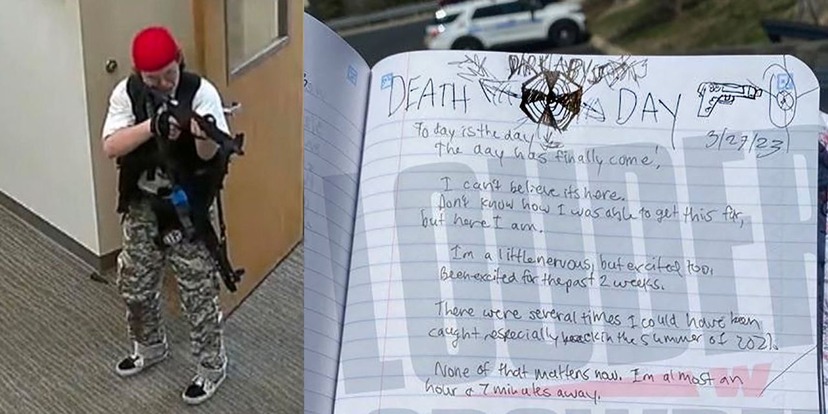 DARK ABYSS
DEATH DAY
3/27/23
Today is the day!
The day has finally come!
I can't believe its here.
Don't know how I was able to get this far,
but here I am.
I'm a little nervous, but excited too,
Been excited for the past 2 weeks.
There were several times I could have been
caught especially back in the summer of 2021.
None of that matters now. I'm almost an
hour & 7 minutes away.
LOUDER
W